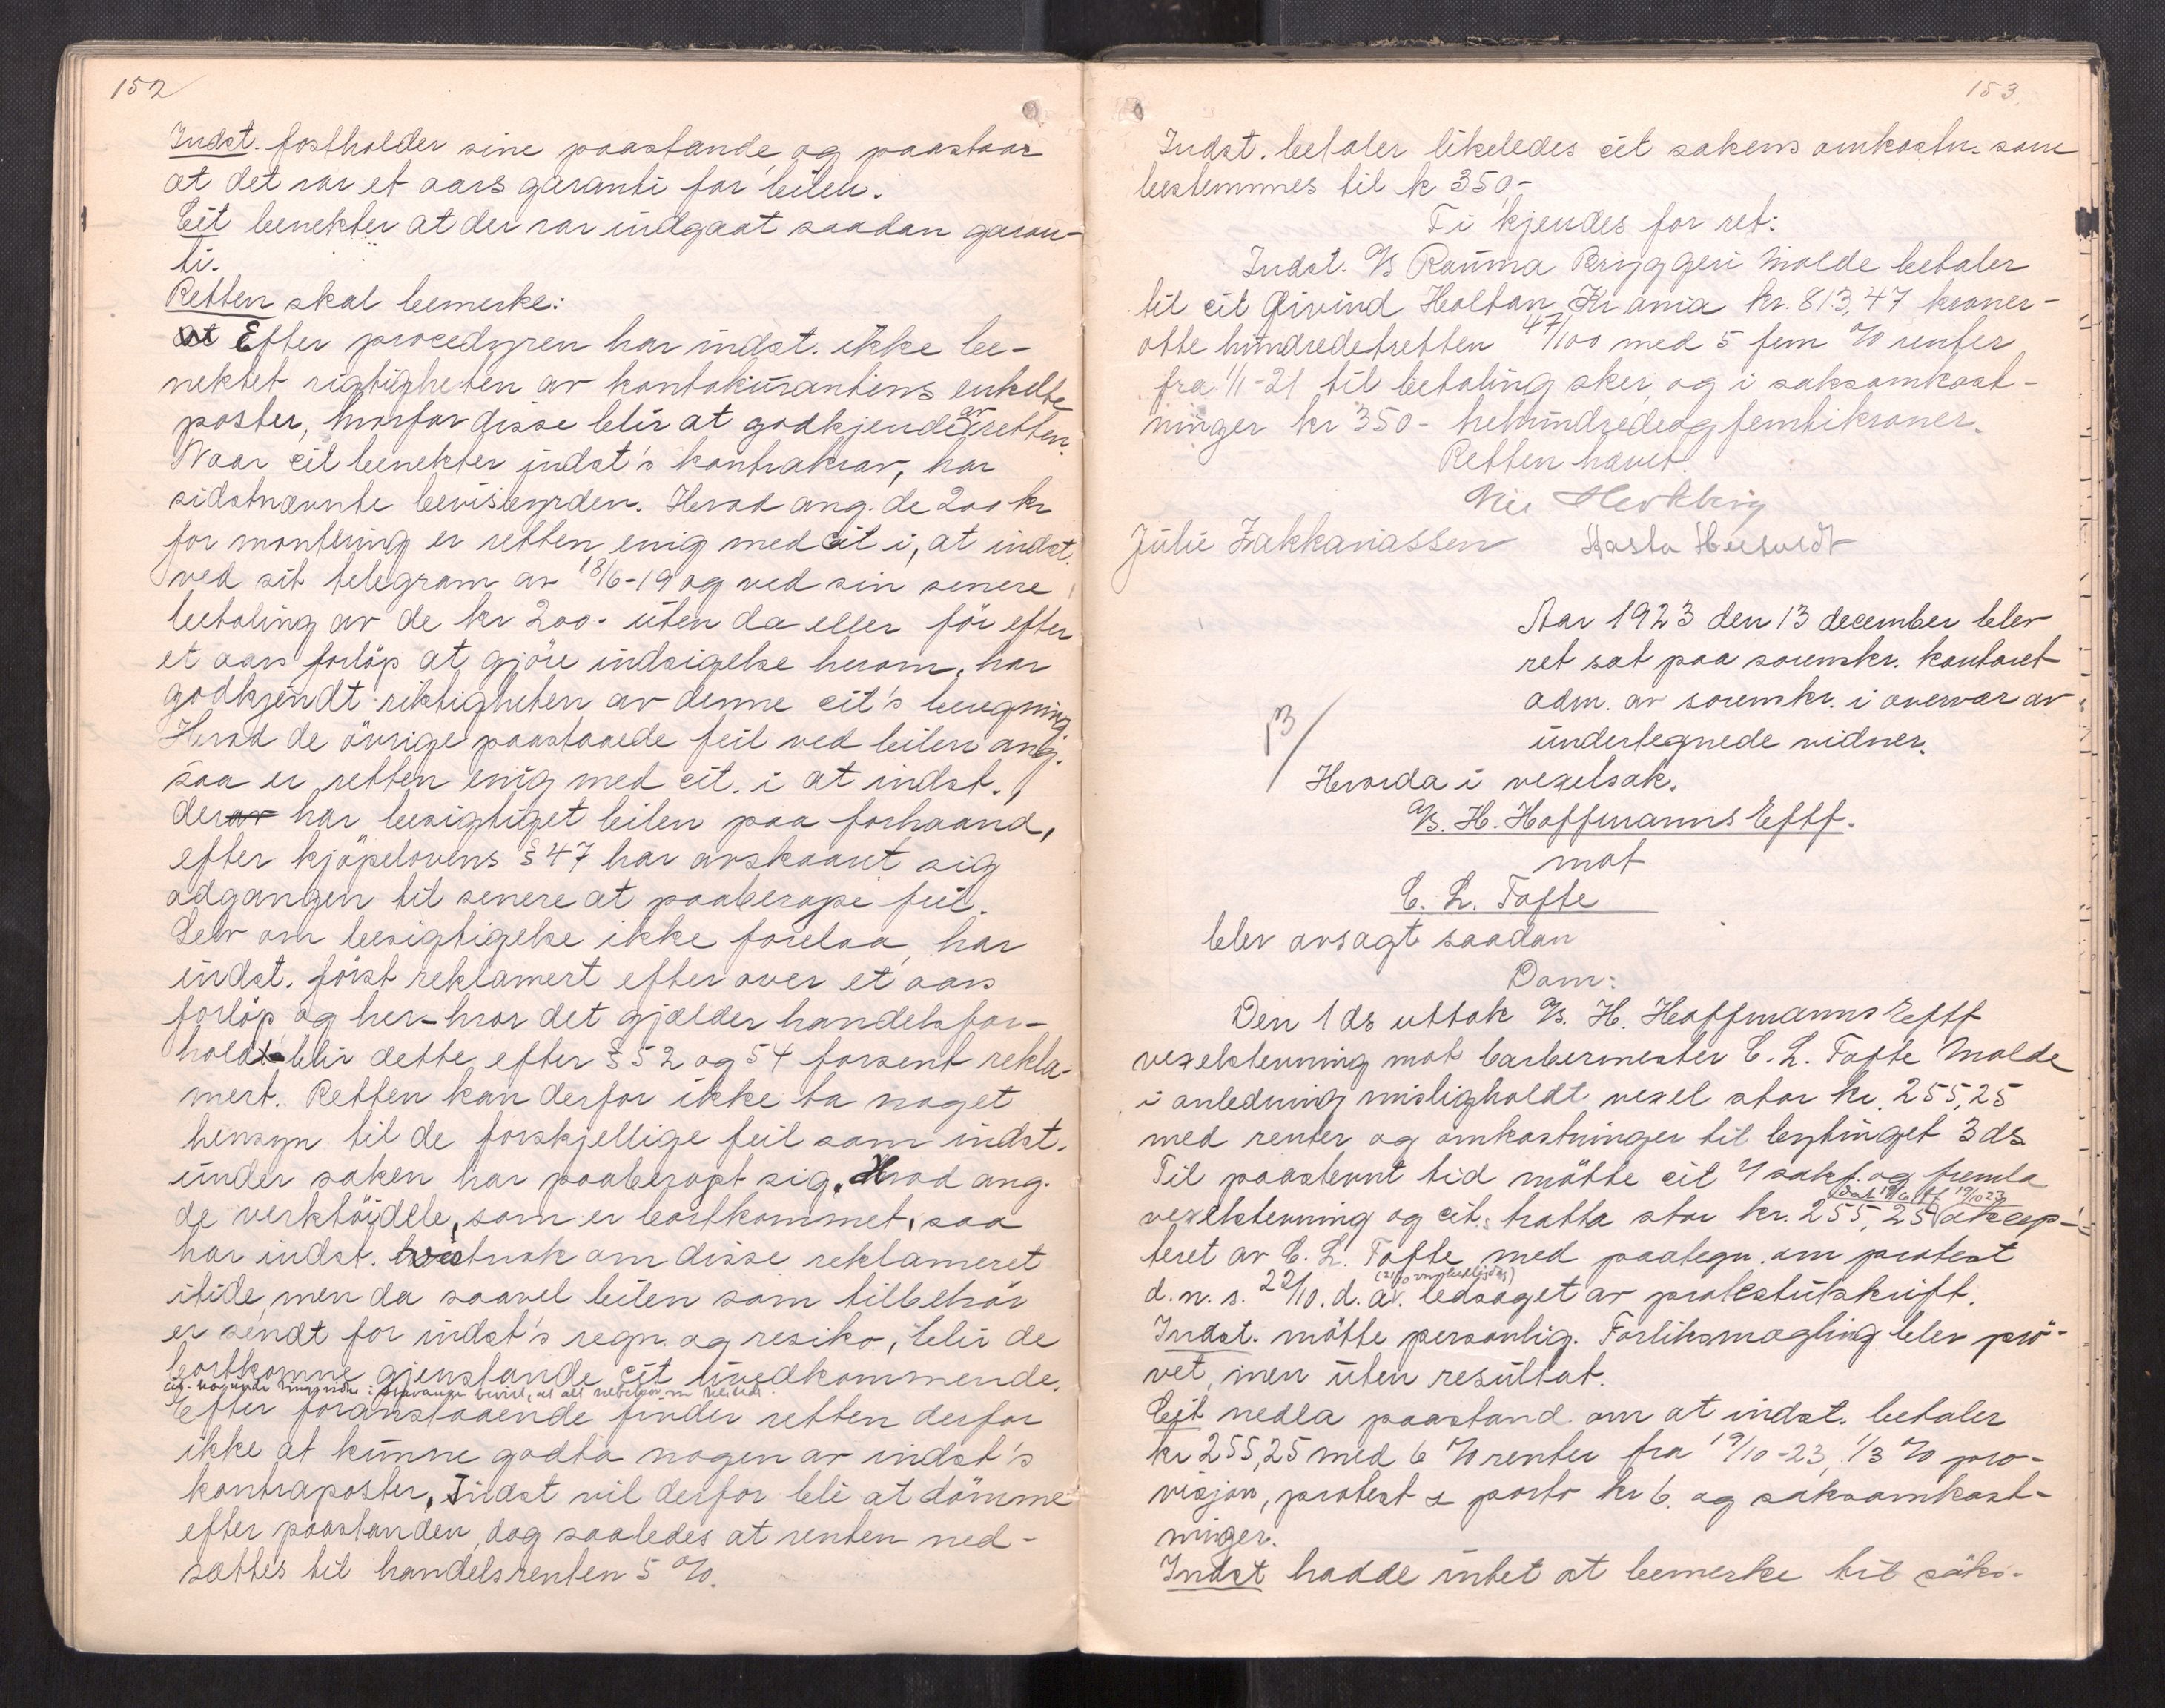 152
Indst. fastholder sine paastande og paastaar
at det var et aars garanti for bilen.
Cit benekter at der var indgaat saadan garan-
ti.
Retten skal bemerke:
Efter procedyren har indst. ikke be-
nektet rigtigheten av kontokurantens enkelte
poster, hvorfor disse blir at godkjende av retten.
Naar cit benekter indst's kontrakrav, har
sidstnævnte bevisbyrden. Hvad ang. de 200 kr
for montering er retten enig med cit i, at indst.
ved sit telegram av 18/6-19 og ved sin senere
betaling av de kr 200.- uten da eller för efter
et aars forlöp at gjöre indsigelse herom, har
godkjendt riktigheten av denne cit's beregning.
Hvad de övrige paastaaede feil ved bilen ang.
saa er retten enig med cit. i at indst.,
der har besigtiget bilen paa forhaand,
efter kjöpelovens § 47 har avskaaret sig
adgangen til senere at paaberope feil.
Selv om besigtigelse ikke forelaa, har
indst. först reklamert efter over et aars
forlöp og her - hvor det gjælder handelsfor-
hold - blir dette efter § 52 og 54 forsent rekla-
mert. Retten kan derfor ikke ta noget
hensyn til de forskjellige feil som indst.
under saken har paaberopt sig. Hvad ang.
de verktöidele, som er bortkommet, saa
har indst. vistnok om disse reklameret
itide, men da saavel bilen som tilbehör
er sendt for indst's regn. og resiko, blir de
bortkomne gjenstande cit uvedkommende.
Efter foranstaaende finder retten derfor
ikke at kunne godta nogen av indst's
kontraposter. Indst vil derfor bli at dömme
efter paastanden, dog saaledes at renten ned-
sættes til handelsrenten 5 %.
153.
Indst. betaler likeledes cit sakens omkostn. som
bestemmes til k 350,-
Ti kjendes for ret:
Indst. A/S Rauma Bryggeri Molde betaler
til cit Eivind Holtan Kr ania kr. 813,47 kroner-
otte hundredetretten 47/100 med 5 fem % renter
fra 1/1-21 til betaling sker, og i saksomkost-
ninger kr 350 - trehundredeogfemtikroner.
Retten hævet.
Julie Zakkariassen
Aar 1923 den 13 december blev
ret sat paa sorenskr. kontoret
adm. av sorenskr. i overvær av
undertegnede vidner.
Hvorda i vexelsak.
A/S. H. Hoffmanns Eftf.
mot
C. L. Tofte
blev avsagt saadan
Dom:
Den 1 ds uttok A/S. H. Hoffmanns Eftf
vexelstevning mot barbermester C. L. Tofte Molde
i anledning misligholdt vexel stor kr. 255,25
med renter og omkostninger til bytinget 3 ds.
Til paastevnt tid mötte cit v/ sakf. og fremla
vexelstevning og cit.s tratta stor kr. 255,25 aksep-
teret av C. L. Tofte med paategn. om protest
d. n. s. 22/10. d. a. ledsaget av protestutskrift.
Indst. mötte personlig. Forliksmægling blev prö-
vet, men uten resultat.
Cit nedla paastand om at indst. betaler
kr 255,25 med 6 % renter fra 19/10-23, 1/3 % pro-
visjon, protest & porto kr 6. og saksomkost-
ninger.
Indst hadde intet at bemerke til söks-